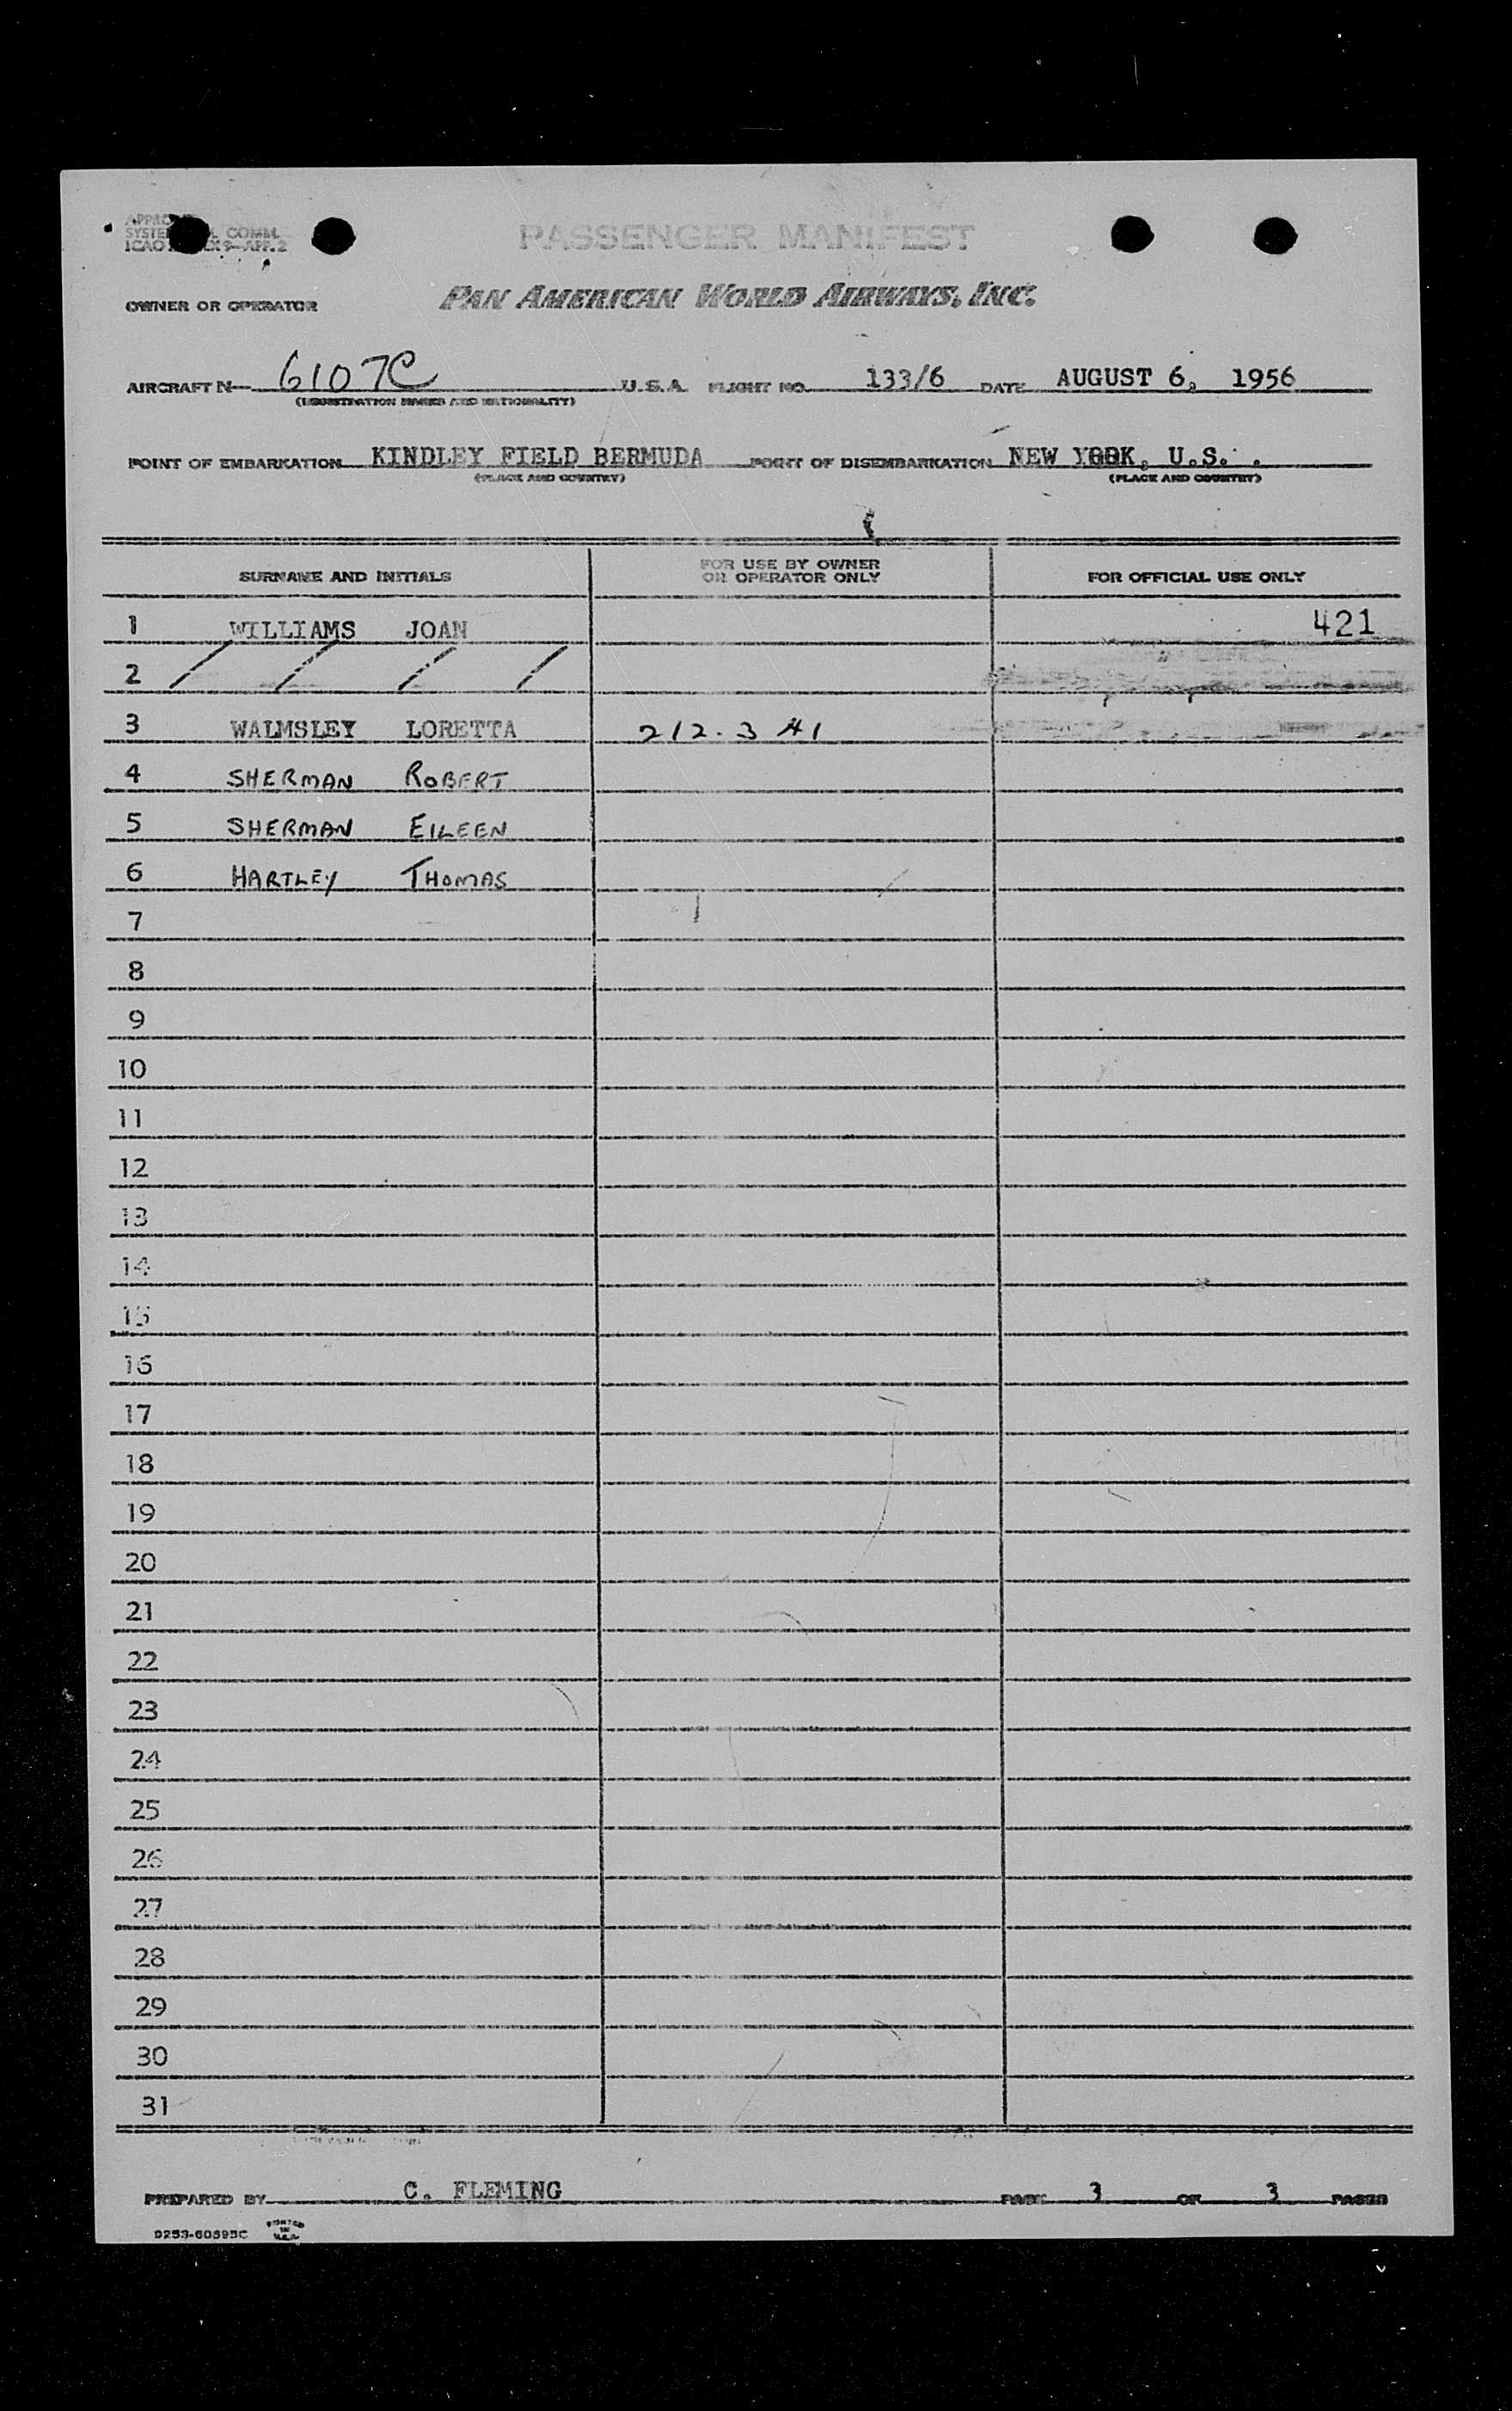 SYSTE COMM.
ICAO 9-APP. 2
PASSENGER MANIFEST
OWNER OR OPERATOR PAN AMERICAN WORLD AIRWAYS, INC.
AIRCRAFT N- 6107C U.S.A. FLIGHT NO. 133/6 DATE AUGUST 6, 1956
(REGISTRATION MARKS AND NATIONALITY)
POINT OF EMBARKATION KINDLEY FIELD BERMUDA POINT OF DISEMBARKATION NEW YORK, U.S. .
(PLACE AND COUNTRY) (PLACE AND COUNTRY)
SURNAME AND INITIALS FOR USE BY OWNER OR OPERATOR ONLY FOR OFFICIAL USE ONLY
1 WILLIAMS JOAN 421
2 / / / /
3 WALMSLEY LORETTA 212. 3 41
4 SHERMAN ROBERT
5 SHERMAN EILEEN
6 HARTLEY THOMAS
7
8
9
10
11
12
13
14
15
16
17
18
19
20
21
22
23
24
25
26
27
28
29
30
31
PREPARED BY C. FLEMING PAGE 3 OF 3 PAGES
PRINTED IN U.S.A.